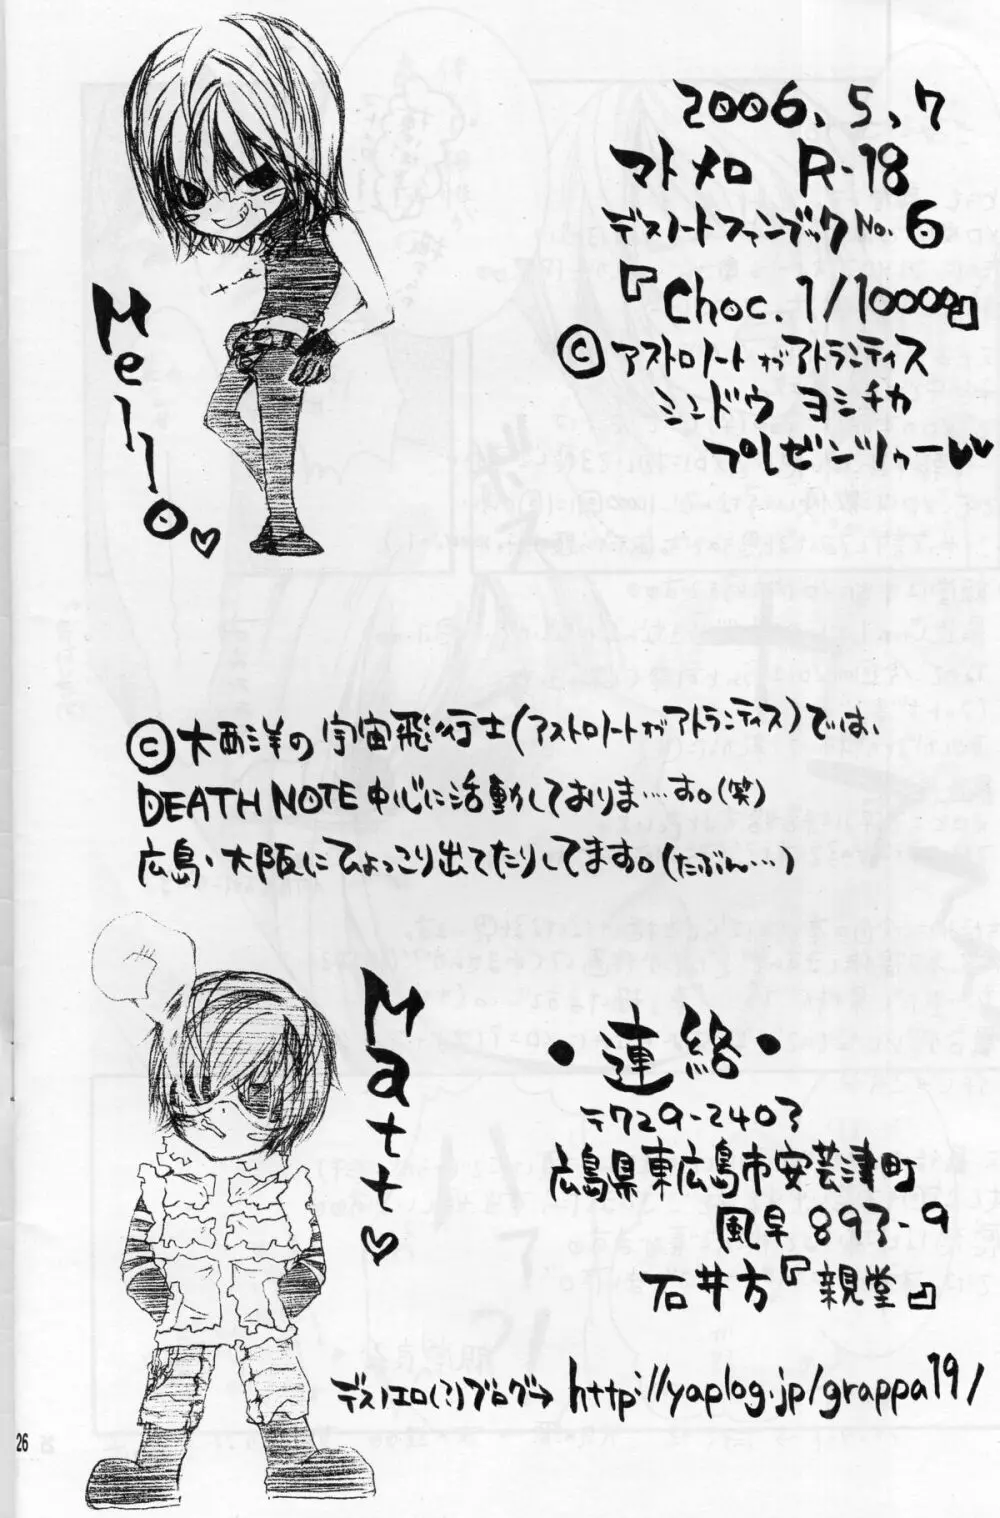 2006.5.7
マトメロ R-18
デスノートファンブック No.6
『Choc.1/1000。』
©アストロノートガアトランティス
シンドウ ヨシチカ
プレゼンツゥー♥♥
Mello♡
©大西洋の宇宙飛行士(アストロノートガアトランティス)では、
DEATH NOTE中心に活動しておりま…す。(笑)
広島・大阪にひょっこり出てたりしてます。(たぶん…)
Matt♡
・連絡・
〒729-2403
広島県東広島市安芸津町
風早893-9
石井方『親堂』
デスノエロ(?)ブログ→ http://yaplog.jp/grappa19/
26